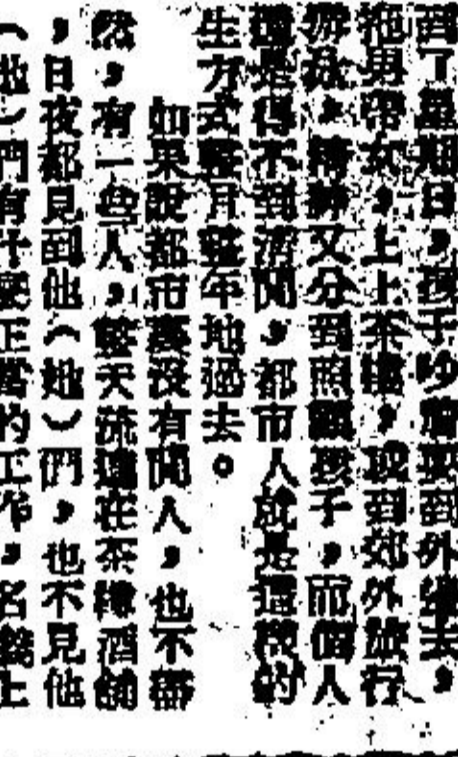 到了星期日，孩子吵着要到外邊去，
拖男帶女，上上茶樓，或到郊外旅行
游泳，精神又分到照顧孩子，而個人
還是得不到清閒，都市人就是這樣的
生方式整月整年地過去。
如果說都市裏沒有閒人，也不盡
然，有一些人，整天流連在茶樓酒舖
，日夜都見到他（她）們，也不見他
（她）們有什麼正當的工作，名義上